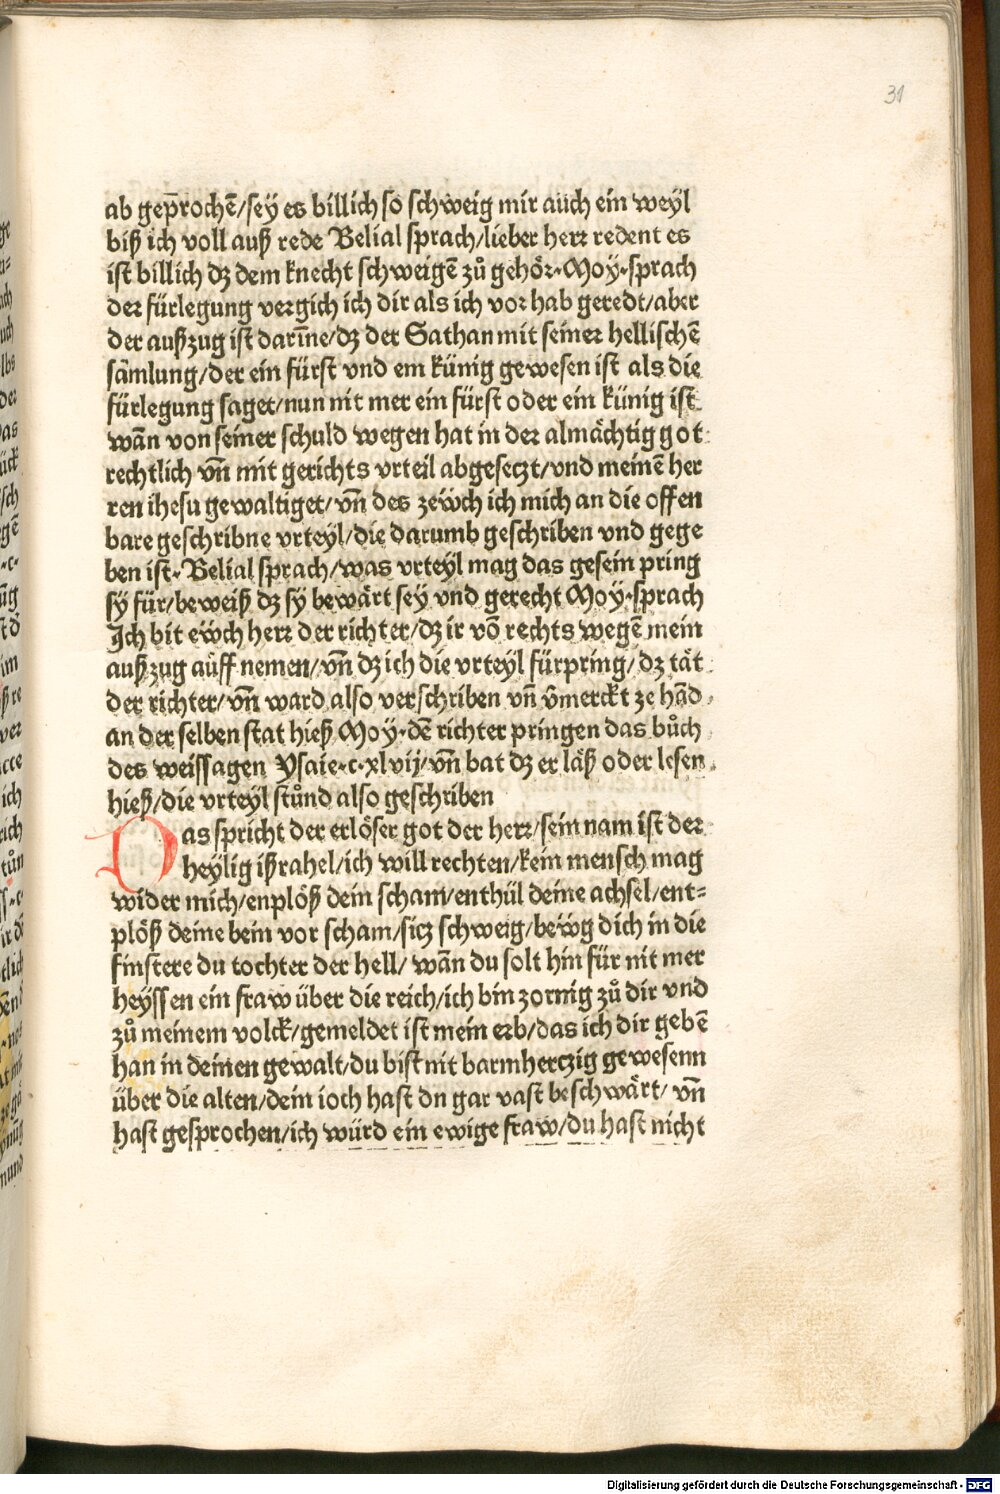 31
ab gep̄rochē/sey es billich so schweig mir auch ein weyl
biß ich voll auß rede Belial sprach/lieber herr redent es
ist billich dz dem knecht schweigē zů gehör·Moy·sprach
der fürlegung vergich ich dir als ich vor hab geredt/aber
der außzug ist darīne/dz der Sathan mit seiner hellischē
sāmlung/der ein fürst vnd ein künig gewesen ist als die
fürlegung saget/nun nit mer ein fürst oder ein künig ist
wān von seiner schuld wegen hat in der almächtig got
rechtlich vn̄ mit gerichts vrteil abgeseczt/vnd meinē her
ren ihesu gewaltiget/vn̄ des zeẅch ich mich an die offen
bare geschribne vrteyl/die darumb geschriben vnd gege
ben ist·Belial sprach/was vrteyl mag das gesein pring
sy für/beweiß dz sy bewärt sey vnd gerecht Moy·sprach
Ich bit eẅch herr der richter/dz ir vō rechts wegē mein
außzug auff nemen/vn̄ dz ich die vrteyl fürpring/dz tät
der richter/vn̄ ward also verschriben vn̄ v̄merckt ze hād
an der selben stat hieß Moy·dē richter pringen das bůch
des weissagen Ysaie·c·xlvij/vn̄ bat dz er läß oder lesen
hieß/die vrteyl stůnd also geschriben
Das spricht der erlöser got der herr/sein nam ist der
heylig ißrahel/ich will rechten/kein mensch mag
wider mich/enplöß dein scham/enthül deine achsel/ent=
plöß deine bein vor scham/sicz schweig/beẅg dich in die
finstere du tochter der hell/ wān du solt hin für nit mer
heyssen ein fraw über die reich/ich bin zornig zů dir vnd
zů meinem volck/gemeldet ist mein erb/das ich dir gebē
han in deinen gewalt/du bist nit barmherczig gewesenn
über die alten/dem ioch hast dn gar vast beschwärt/ vn̄
hast gesprochen/ich würd ein ewige fraw/du hast nicht
Digitalisierung gefördert durch die Deutsche Forschungsgemeinschaft - DFG